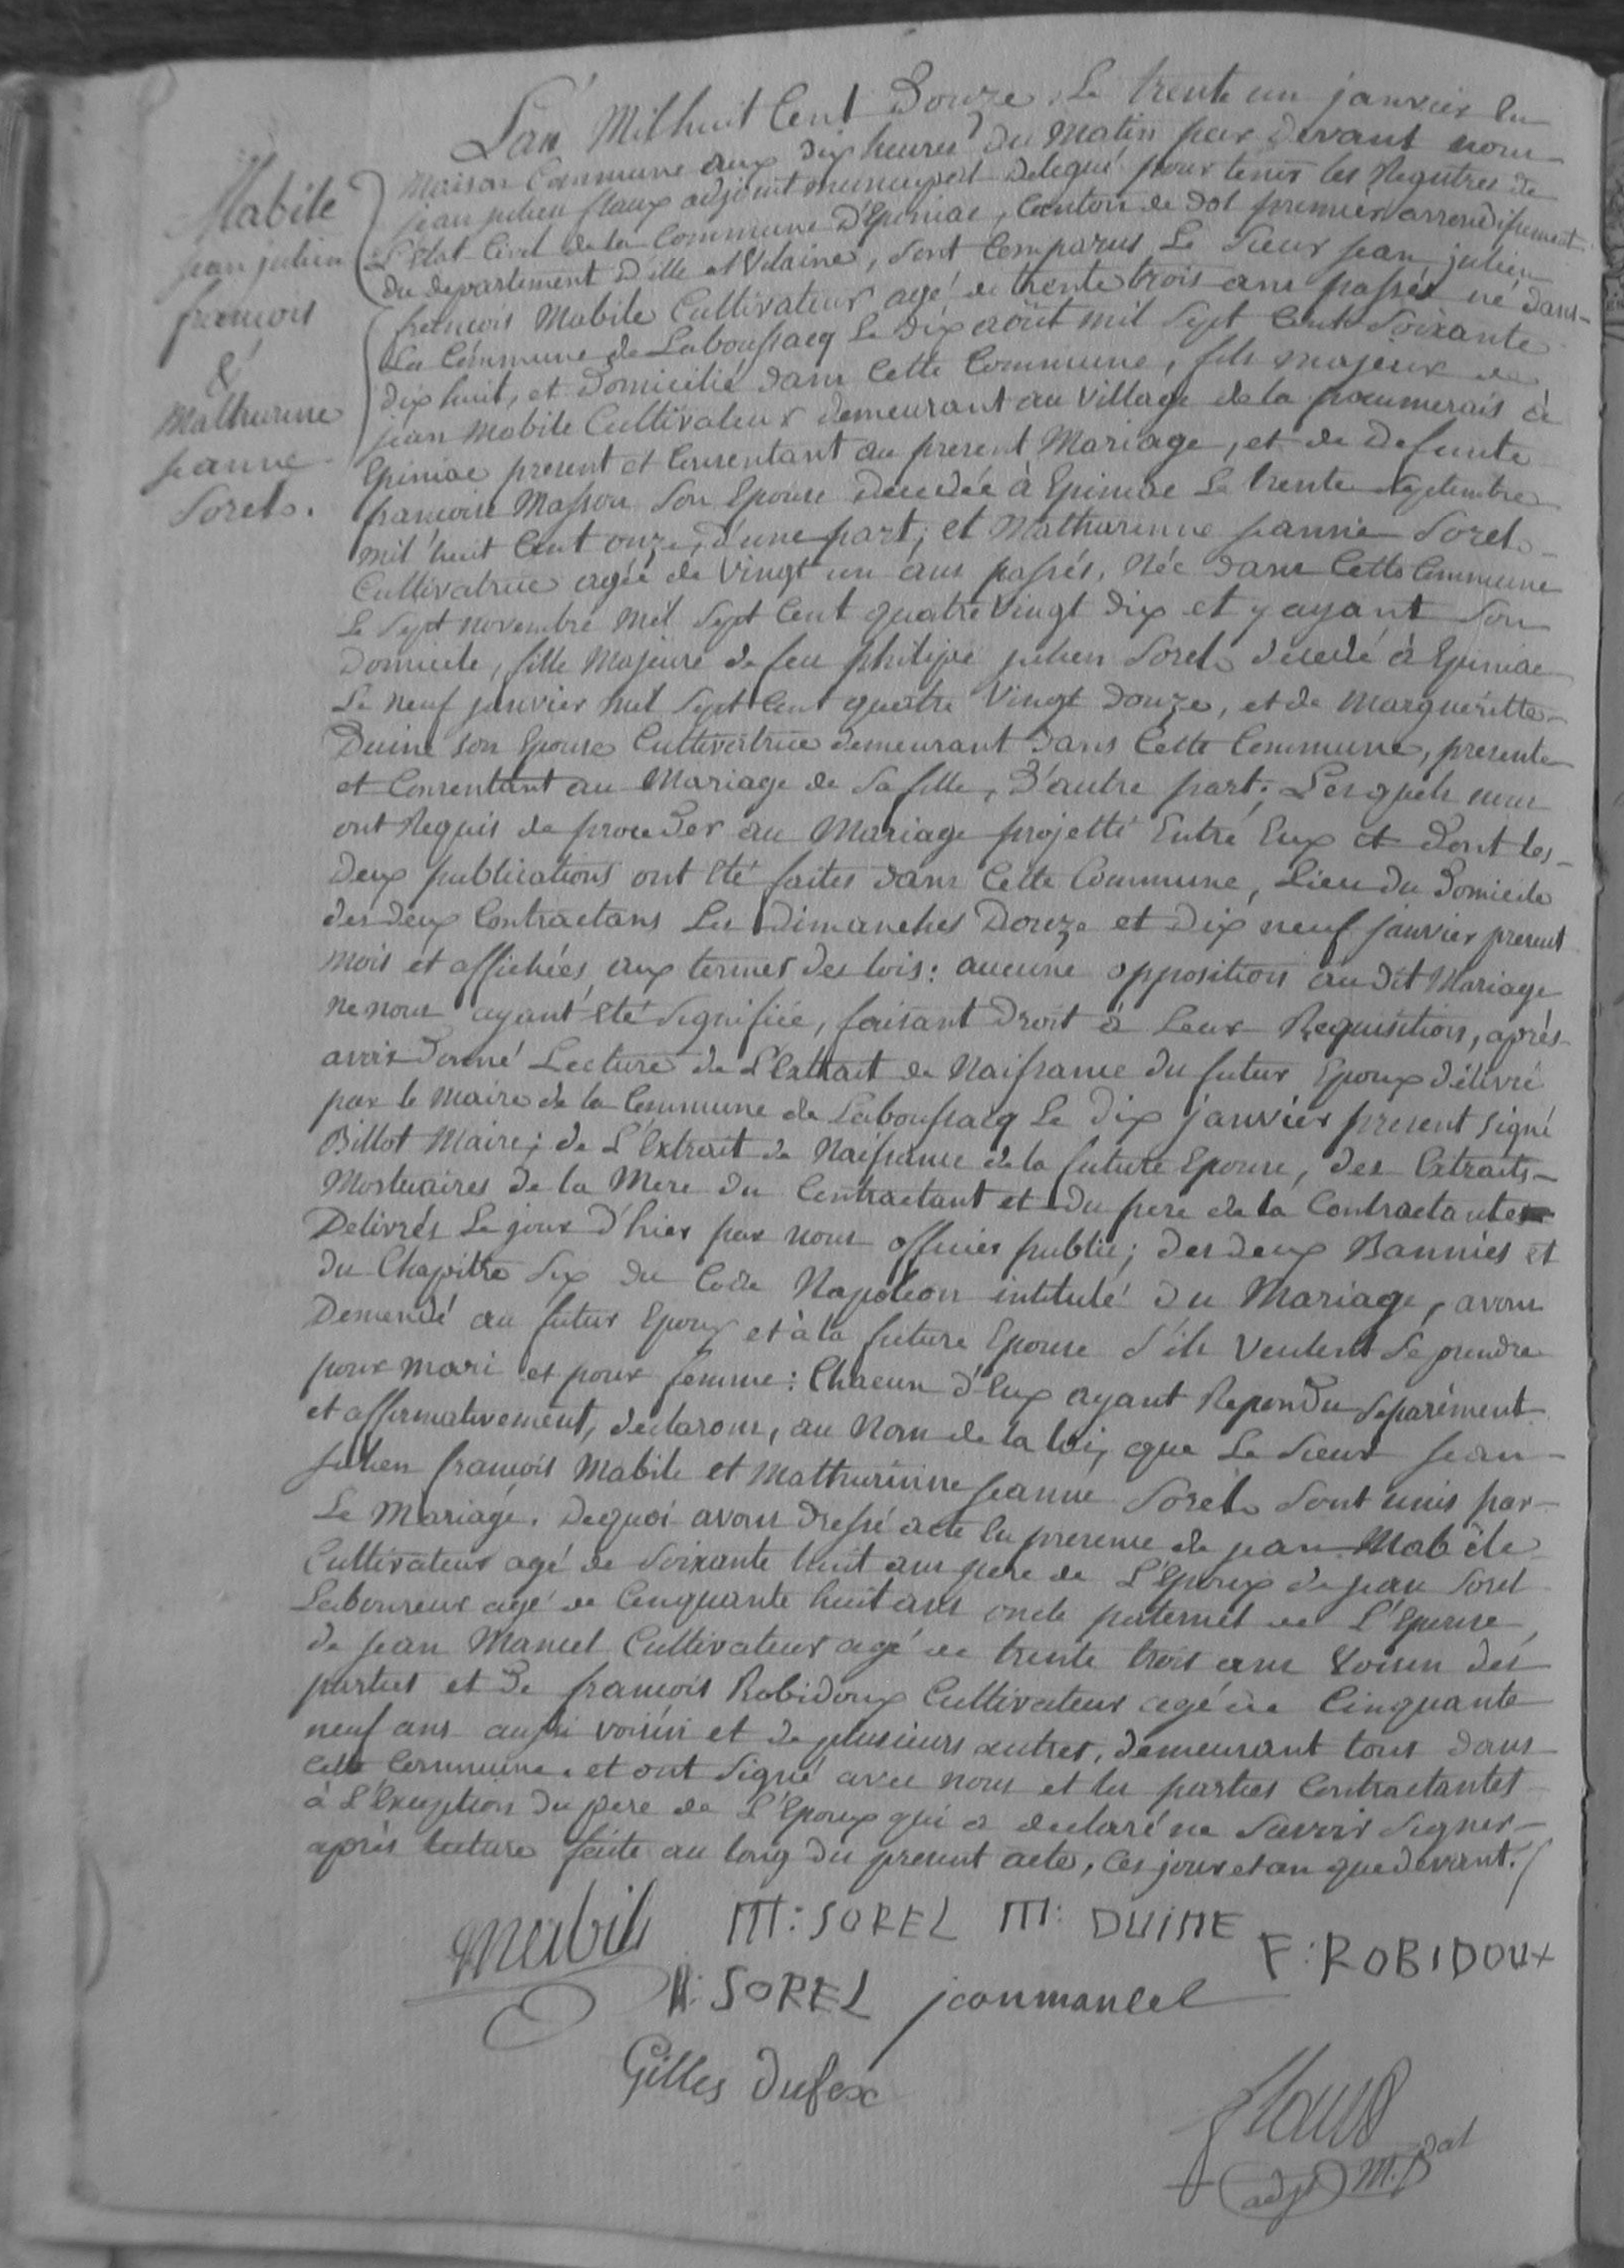 Mabile
jean julien
francois
&
Mathurinne
jeanne
Sorel.
L'an Mil huit Cent Douze, Le trente un janvier En
Maison Commune aux dix heures du Matin par devant nous
jean julien flaux adjoint municipal délégué pour tenir les Registres de
L'Etat Civil de la Commune D'Epiniac, Canton de Dol premier arrondissement
du departement D'ille et Vilaine, sont Comparus Le Sieur jean julien
francois Mabile Cultivateur agé de trente trois ans passés né dans
La Commune de Laboussacq Le Dix août mil Sept Cent Soixante
dix huit, et Domicilié dans Cette Commune, fils majeur de
jean Mabile Cultivateur demeurant au Village de la à
Epiniac present et Consentant au present Mariage, et de Defunte
francoise Masson Son Epouse décédée à Epiniac Le trente Septembre
mil huit Cent onze, d'une part; et Mathurinne jeanne Sorel
Cultivatrice agée de Vingt un ans passés, Née dans Cette Commune
Le Sept novembre Mil Sept Cent quatre Vingt Dix et y ayant Son
Domicile, fille Majeure de feu philipe julien Sorel décédé à Epiniac
Le Neuf janvier mil Sept Cent quatre Vingt Douze, et de Margueritte
Duine son Epouse Cultivatrice demeurant dans Cette Commune, presente
et Consentant au Mariage de Sa fille, D'autre part; Lesquels nous
ont Requis de proceder au Mariage projetté Entre Eux et Dont les
Deux publications ont Eté faites dans Cette Commune, Lieu du Domicile
des deux Contractans Les Dimanches Douze et Dix neuf janvier present
mois et affichées aux termes des lois: aucune opposition audit Mariage
ne nous ayant Eté Signifiée, faisant Droit à Leur Requisition, après
avoir Donné Lecture de L'Extrait de Naissance du futur Epoux délivré
par le Maire de la Commune de Laboussacq Le Dix janvier present Signé
Billot Maire; de L'Extrait de Naissance de la future Epouse, des Extraits
Mortuaires de la Mere du Contractant et du pere de la Contractante
Délivrés Le jour d'hier par nous officier public; des deux Bannies et
du Chapitre Six du Code Napoléon intitulé du Mariage, avons
Demandé au futur Epoux et à la future Epouse S'ils Veulent Se prendre
pour mari et pour femme: Chacun d'Eux ayant Repondu Separément
et affirmativement, déclarons, au Nom de la loi, que Le Sieur jean
julien francois Mabile et Mathurinne jeanne Sorel Sont unis par
Le Mariage. Dequoi avons dressé acte En presence de jean Mabile
Cultivateur agé de Soixante huit ans pere de L'Epoux de jean Sorel
Laboureur agé de Cinquante huit ans oncle paternel de L'Epouse,
de jean Mancel Cultivateur agé de trente trois ans Voisin des
parties et de francois Robidoux Cultivateur agé de Cinquante
neuf ans aussi voisin et de plusieurs autres, demeurant tous dans
Cette Commune. et ont Signé avec nous et les parties Contractantes
à L'Exception du pere de L'Epoux qui a declaré ne Savoir Signer
après lecture faite au long du present acte, Ces jour et an que devant.
Mabile M: SOREL M: DUINE F: ROBIDOUX
SOREL jean mancel
Gilles Dufeix
flaux
(adjt)